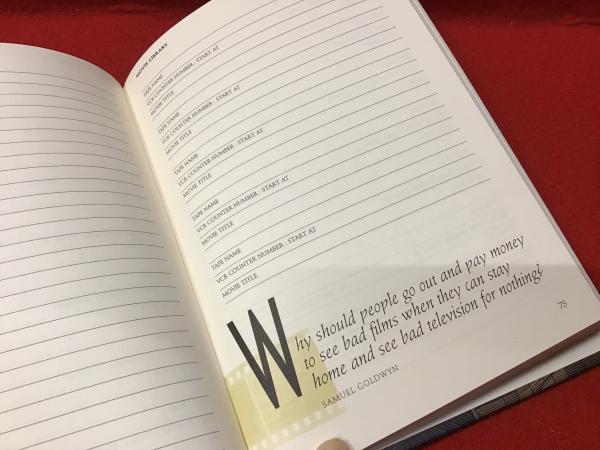 MOVIE LIBRARY
TAPE NAME
VCR COUNTER NUMBER : START AT
MOVIE TITLE
TAPE NAME
VCR COUNTER NUMBER : START AT
MOVIE TITLE
TAPE NAME
VCR COUNTER NUMBER : START AT
MOVIE TITLE
TAPE NAME
VCR COUNTER NUMBER : START AT
MOVIE TITLE
TAPE NAME
VCR COUNTER NUMBER : START AT
MOVIE TITLE
Why should people go out and pay money
to see bad films when they can stay
home and see bad television for nothing¿
SAMUEL GOLDWYN
75